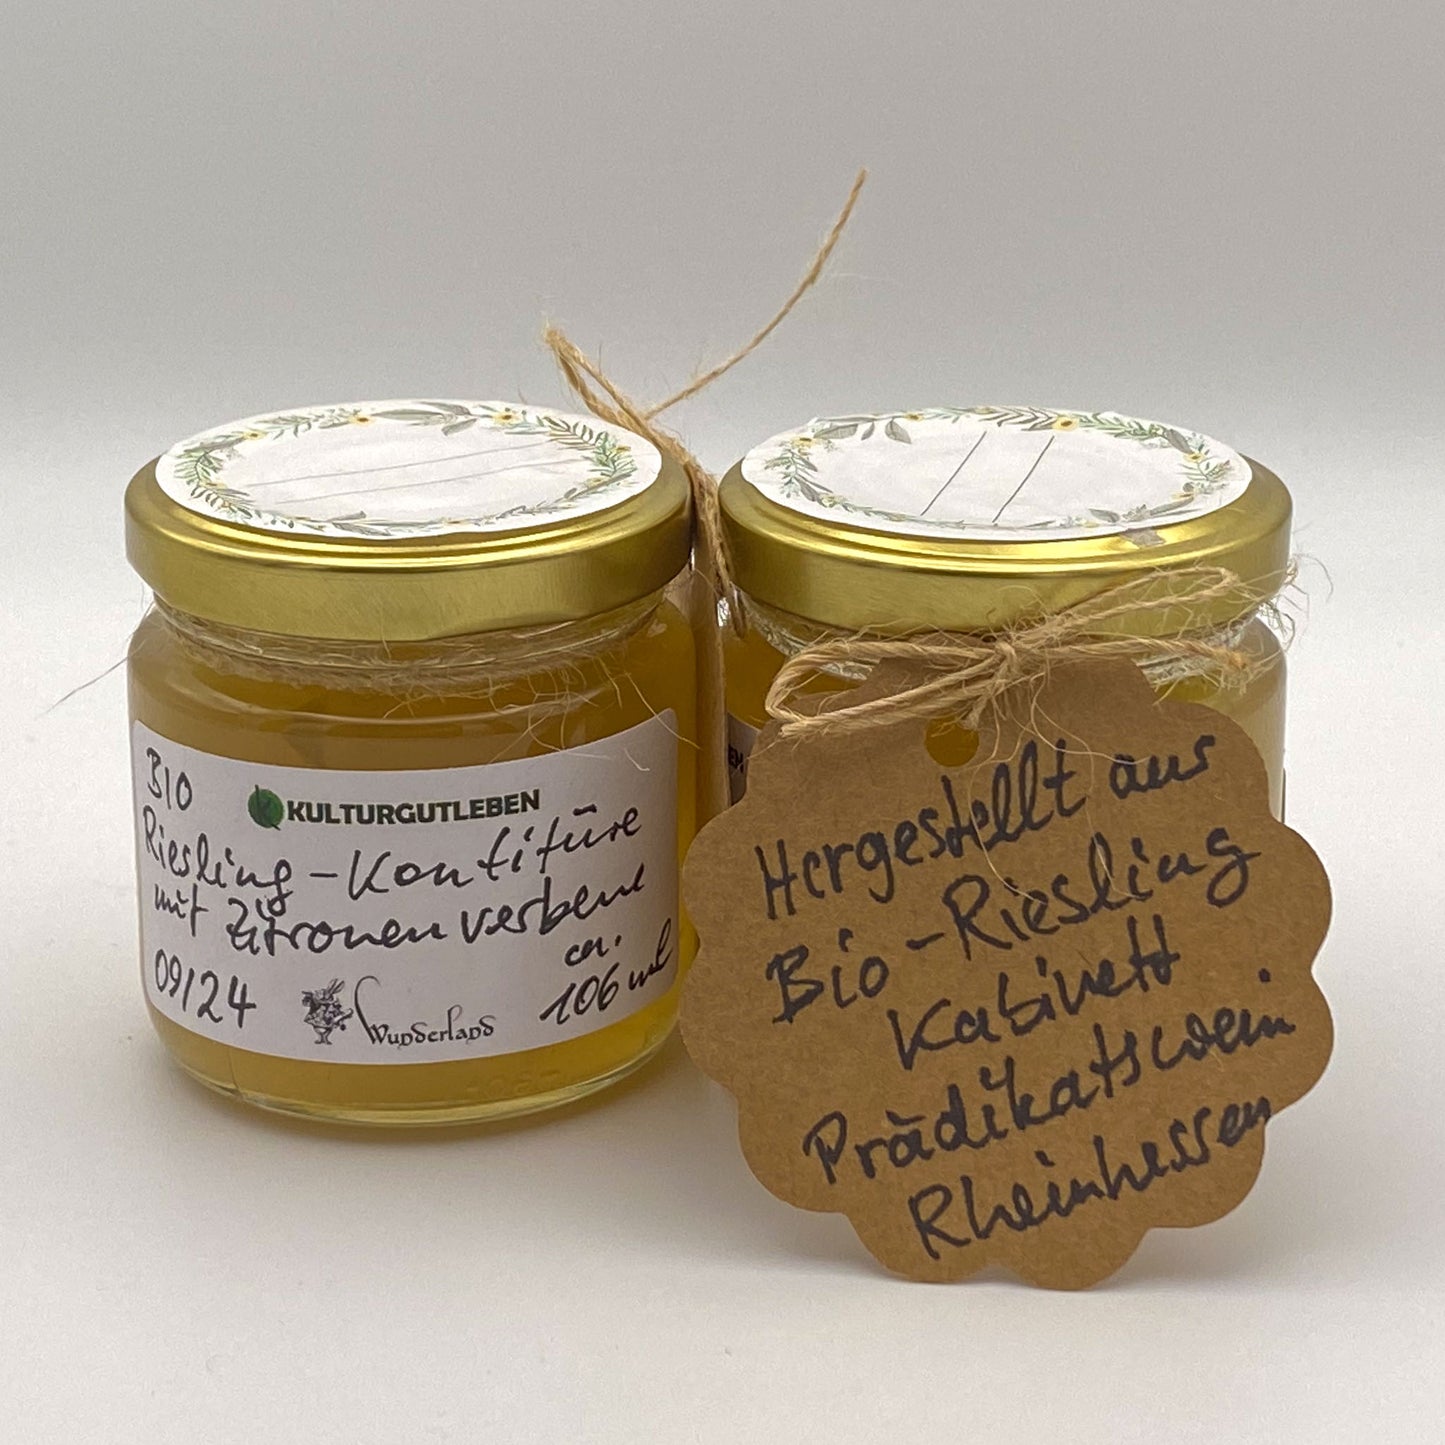 BIO
KULTURGUTLEBEN
Riesling-Konfitüre
mit Zitronenverbene
09/24
Wunderland
ca.
106 ml
Hergestellt aus
Bio-Riesling
Kabinett
Prädikatswein
Rheinhessen